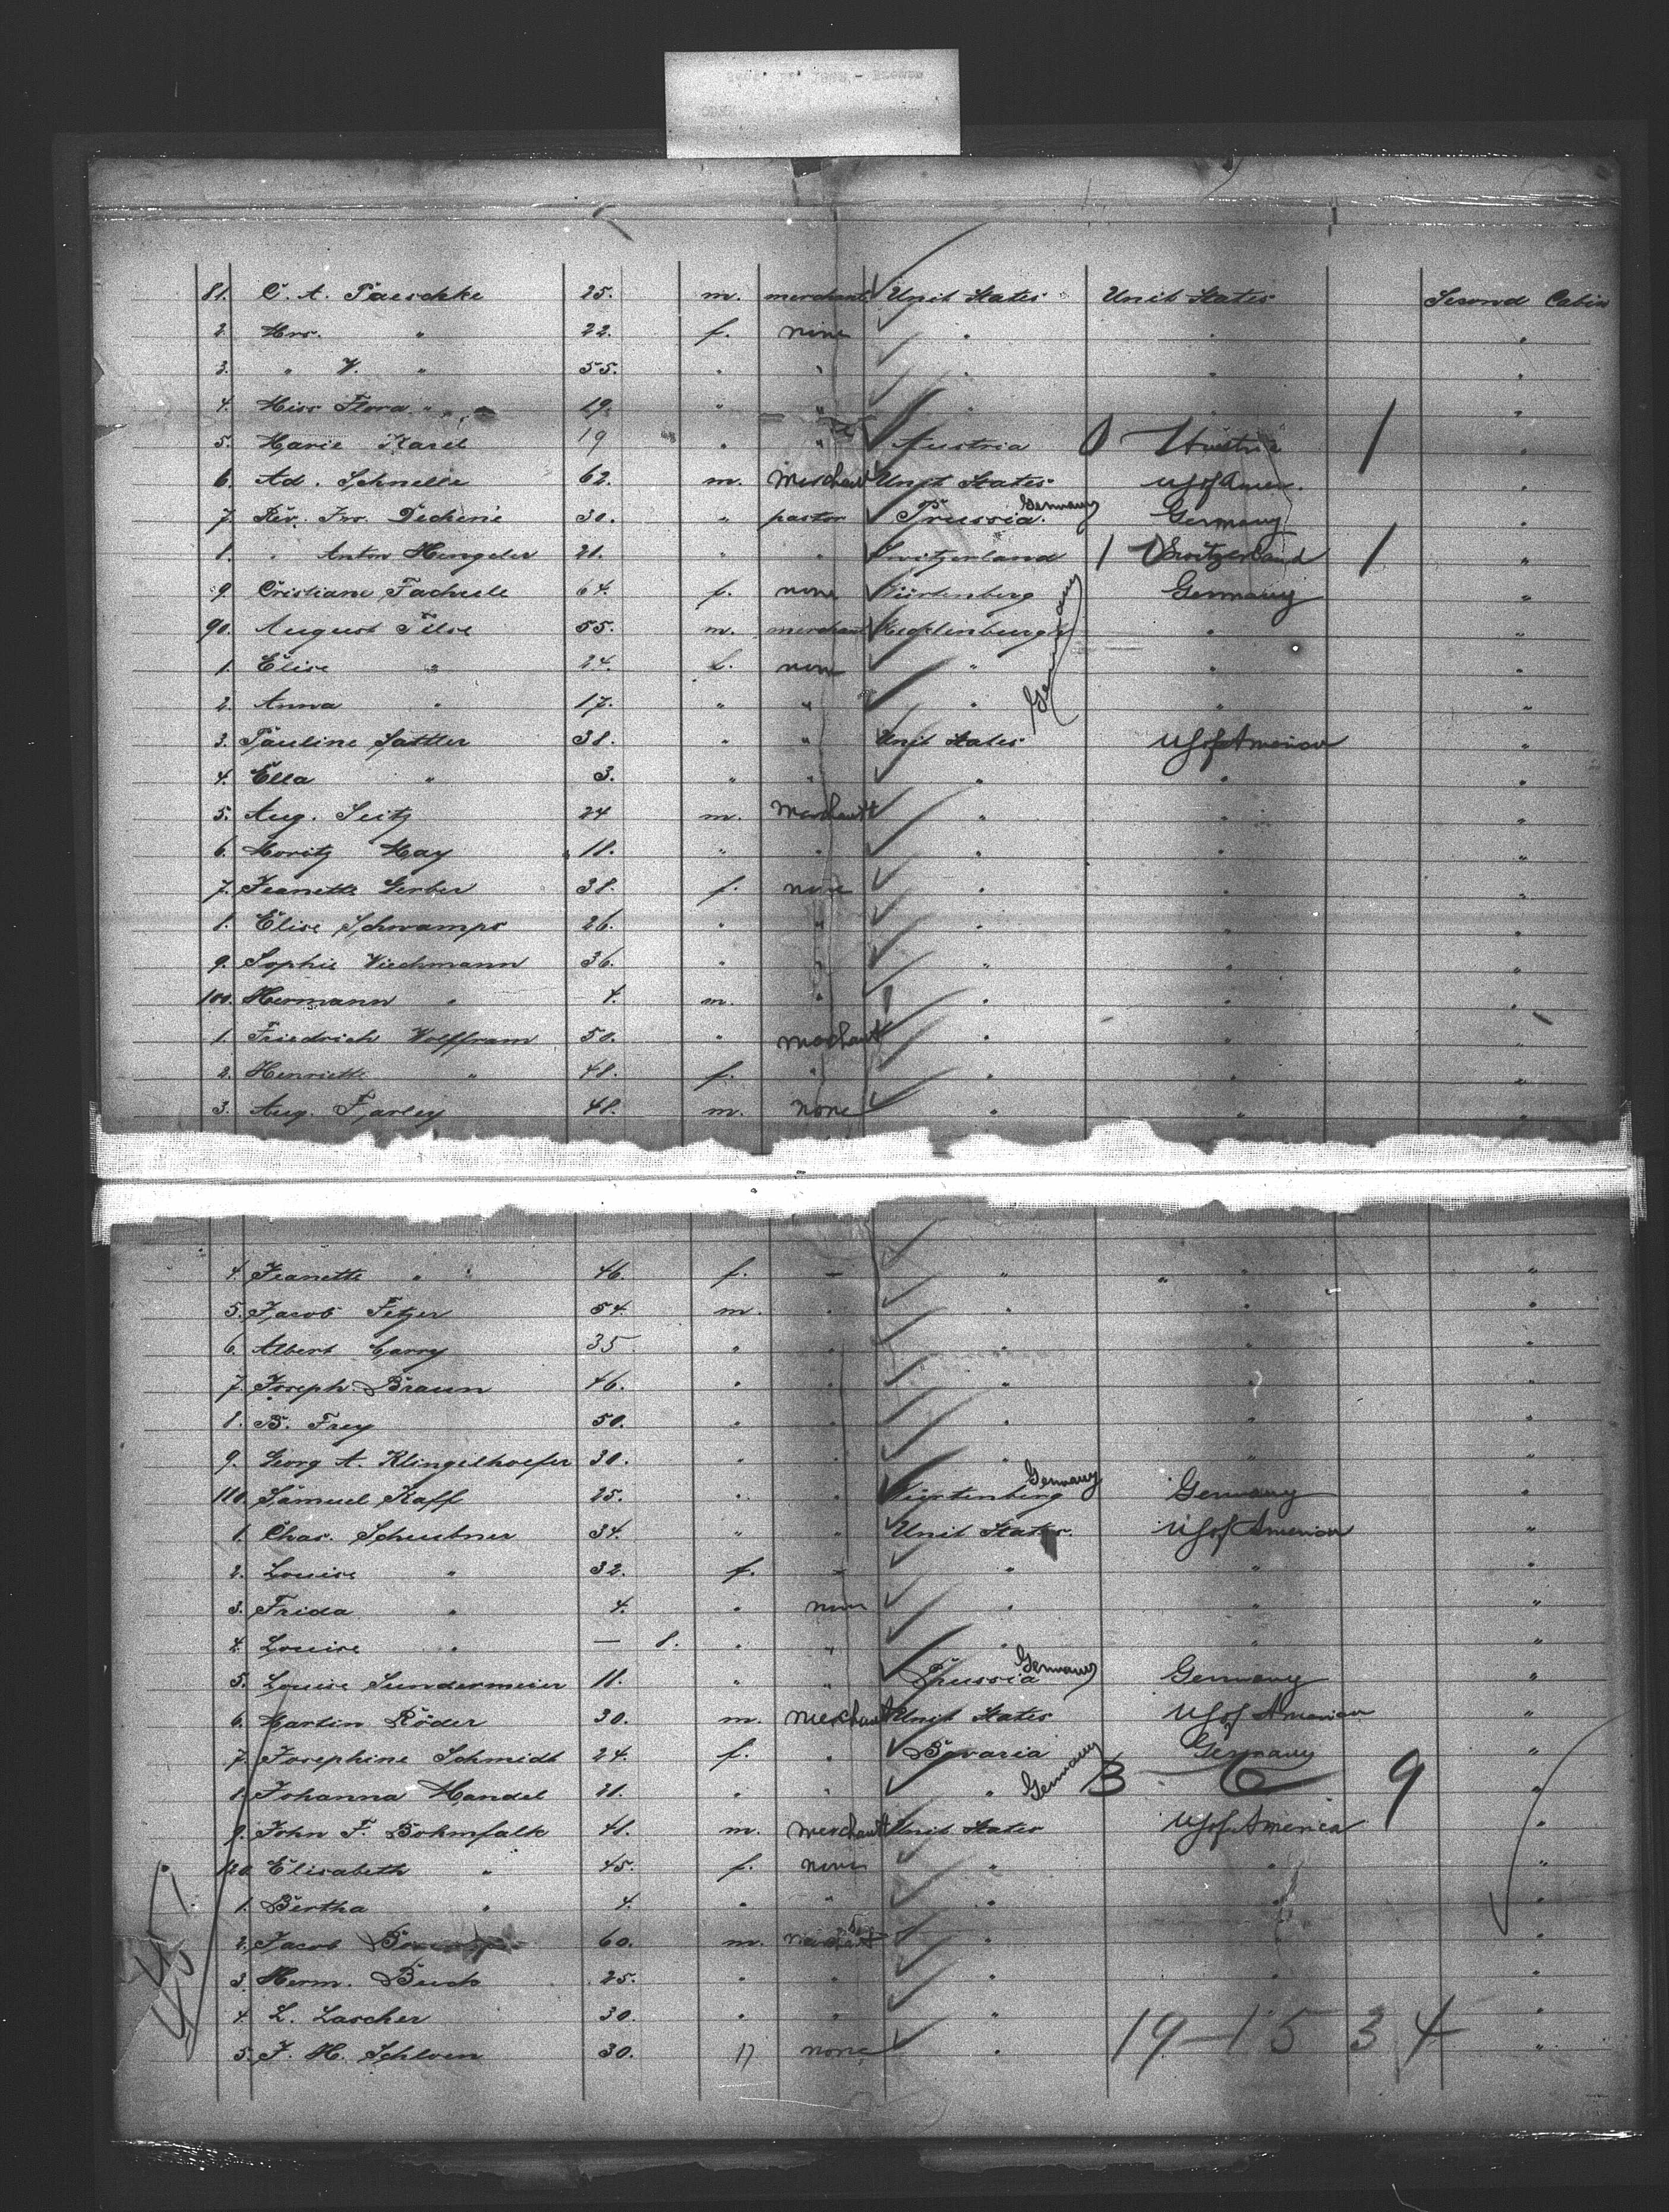 81. C. A. Paeschke 25. m. merchant Unit States Unit States Second Cabin
2. Mrs. " 22. f. none " " "
3. " W. " 55. " " " " "
4. Miss Flora " 19. " " " " "
5. Marie Karel 19 " " Austria 0 1 Austria 1 "
6. Ad. Schnelle 62. m. merchant Unit States U S of Amer. "
7. Rev. Frr. Decherie 30. " pastor Prussia. Germany Germany "
8. " Anton Hengeler 21. " " Switzerland 1 0 Switzerland 1 "
9. Cristiane Facheele 64. f. none Würtenberg Germany "
90. August Tilse 55. m. merchant Mecklenburg " "
1. Elise " 24. f. none " " "
2. Anna " 17. " " " Germany " "
3. Pauline Sattler 38. " " Unit States U S of America "
4. Ella " 3. " " " " "
5. Aug. Seitz 24 m. merchant " " "
6. Moritz May 18. " " " " "
7. Jeanette Gerber 38. f. none " " "
8. Elise Schwamps 26. " " " " "
9. Sophie Wiechmann 36. " " " " "
100. Hermann " 4. m. " " " "
1. Friedrich Wolffram 50. " merchant " " "
2. Henriette " 48. f. " " " "
3. Aug. Farley 48. m. none " " "
4. Jeanette " 46. f. - " " " "
5. Jacob Fetzer 54. m. " " " "
6. Albert Carry 35 " " " " "
7. Joseph Braun 46. " " " " "
8. B. Frey 50. " " " " "
9. Georg A. Klingelhoefer 30. " " " " "
110. Samuel Kaff 25. " " Würtenberg Germany Germany "
1. Chas. Scheubner 34. " " Unit States U S of America "
2. Louise " 32. f. - " " "
3. Frida " 4. " none " " "
4. Louise " — 8. " " " " "
5. Louise Sundermeier 18. " " Prussia Germany Germany "
6. Martin Röder 30. m. merchant Unit States U S of America "
7. Josephine Schmidt 24. f. " Bavaria Germany "
8. Johanna Handel 21. " " " Germany 3 6 9 "
9. John F. Bohmfalk 48. m. merchant Unit States U S of America "
120. Elisabeth " 45. f. none " " "
1. Bertha " 4. " " " " "
2. Jacob 60. m. merchant " " "
3. Herm. Buck 25. " " " " "
4. L. Lascher 30. " " " "
5. J. H. Schloen 30. " none " "
19-15 34